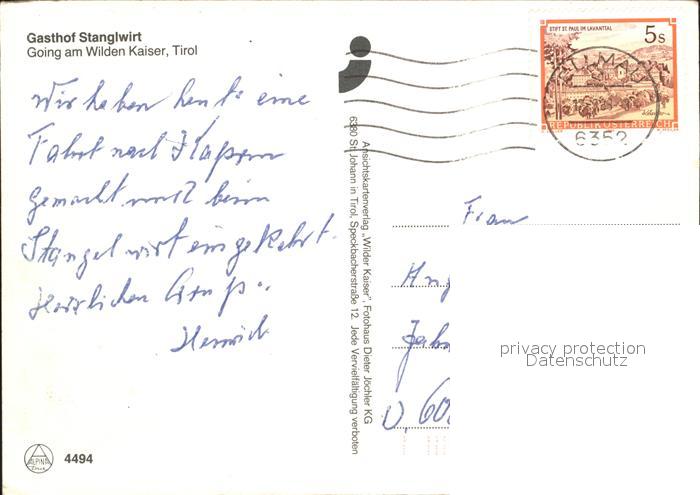 Gasthof Stanglwirt
Going am Wilden Kaiser, Tirol
Wir haben heute eine
Fahrt nach
gemacht und beim
Stangelwirt eingekehrt.
Herzlichen Gruß
4494
ALPINA
Ansichtskartenverlag „Wilder Kaiser", Fotohaus Dieter Jöchler KG
6380 St. Johann in Tirol, Speckbacherstraße 12. Jede Vervielfältigung verboten
STIFT ST. PAUL IM LAVANTTAL
5s
REPUBLIK ÖSTERREICH
6352
Frau
privacy protection
Datenschutz